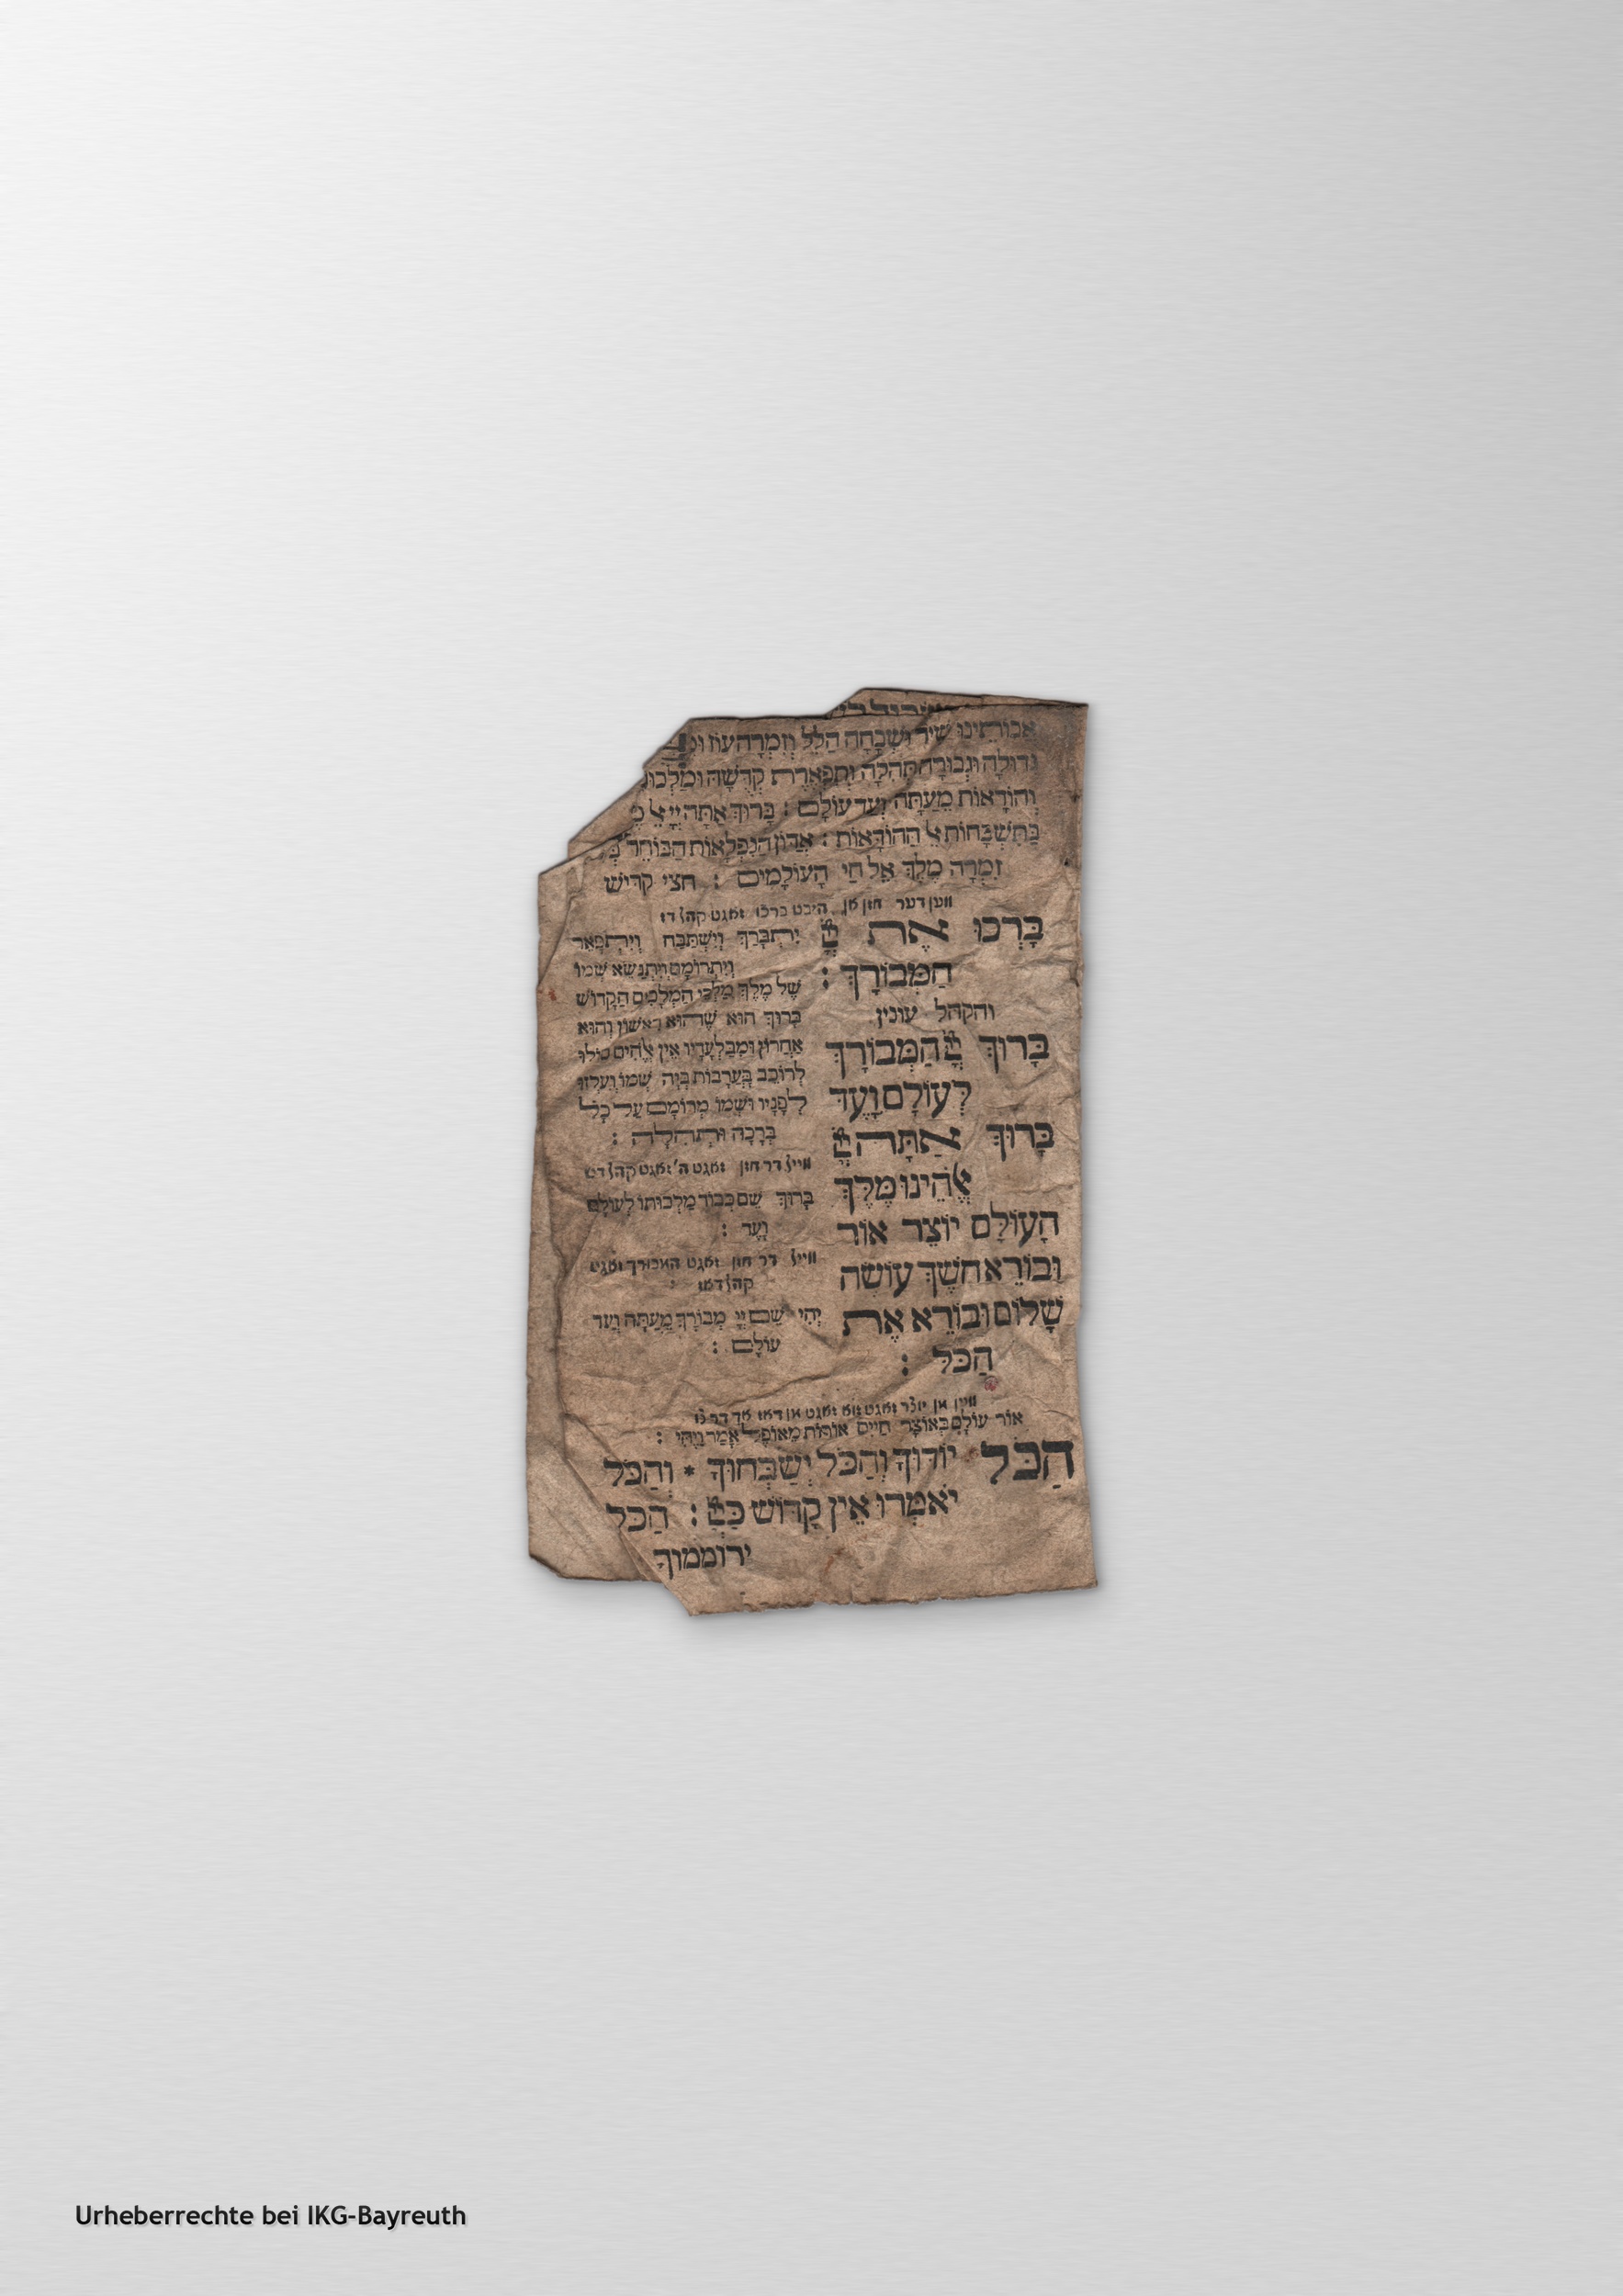 אֲבוֹתֵינוּ שִׁיר וּשְׁבָחָה הַלֵּל וְזִמְרָה עוֹז
גְּדוּלָּה וּגְבוּרָה תְּהִלָּה וְתִפְאֶרֶת קְדֻשָּׁה וּמַלְכוּ
וְהוֹדָאוֹת מֵעַתָּה וְעַד עוֹלָם : בָּרוּךְ אַתָּה יְיָ אֵל
בַּתִּשְׁבָּחוֹת אֵל הַהוֹדָאוֹת : אֲדוֹן הַנִּפְלָאוֹת הַבּוֹחֵר
זִמְרָה מֶלֶךְ אֵל חַי הָעוֹלָמִים : חצי קדיש
ווען דער חזן אן היבט ברכו זאגט קהל דז
בָּרְכוּ אֶת יְיָ
הַמְּבוֹרָךְ :
והקהל עונין
בָּרוּךְ יְיָ הַמְּבוֹרָךְ
לְעוֹלָם וָעֶד
בָּרוּךְ אַתָּה יְיָ
אֱלֹהֵינוּ מֶלֶךְ
הָעוֹלָם יוֹצֵר אוֹר
וּבוֹרֵא חֹשֶׁךְ עוֹשֶׂה
שָׁלוֹם וּבוֹרֵא אֶת
הַכֹּל :
יִתְבָּרַךְ וְיִשְׁתַּבַּח וְיִתְפָּאַר
וְיִתְרוֹמַם וְיִתְנַשֵּׂא שְׁמוֹ
שֶׁל מֶלֶךְ מַלְכֵי הַמְּלָכִים הַקָּדוֹשׁ
בָּרוּךְ הוּא שֶׁהוּא רִאשׁוֹן וְהוּא
אַחֲרוֹן וּמִבַּלְעָדָיו אֵין אֱלֹהִים סוֹלּוּ
לָרוֹכֵב בָּעֲרָבוֹת בְּיָהּ שְׁמוֹ וְעִלְזוּ
לְפָנָיו וּשְׁמוֹ מְרוֹמָם עַל כָּל
בְּרָכָה וּתְהִלָּה :
ווייל דר חזן זאגט ה' זאגט קהל דש
בָּרוּךְ שֵׁם כְּבוֹד מַלְכוּתוֹ לְעוֹלָם
וָעֶד :
ווייל דר חזן זאגט המבורך זאגט
קהל דאז :
יְהִי שֵׁם יְיָ מְבוֹרָךְ מֵעַתָּה וְעַד
עוֹלָם :
אן יוצר זאגט זאגט מן דאז
אוֹר עוֹלָם בְּאוֹצַר חַיִּים אוֹרוֹת מֵאוֹפֶל אָמַר וַיֶּהִי :
הַכֹּל יוֹדוּךָ וְהַכֹּל יְשַׁבְּחוּךָ * וְהַכֹּל
יֹאמְרוּ אֵין קָדוֹשׁ כַּיְיָ : הַכֹּל
ירוממוך
Urheberrechte bei IKG-Bayreuth